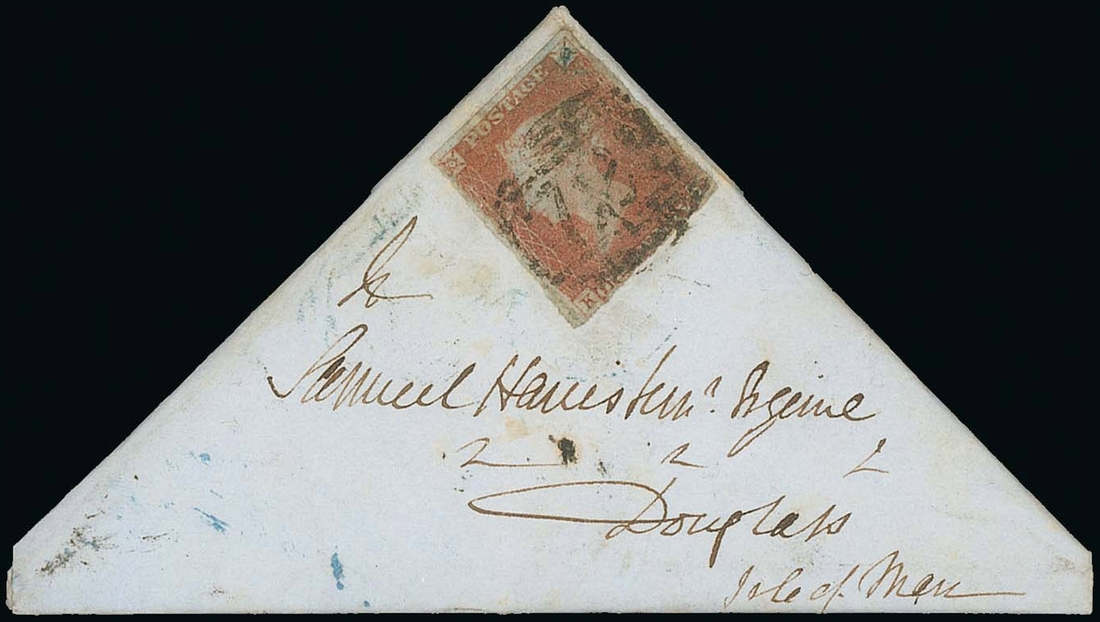 POSTAGE
To
Samuel Harris Senr. Esquire
Douglass
Isle of Man